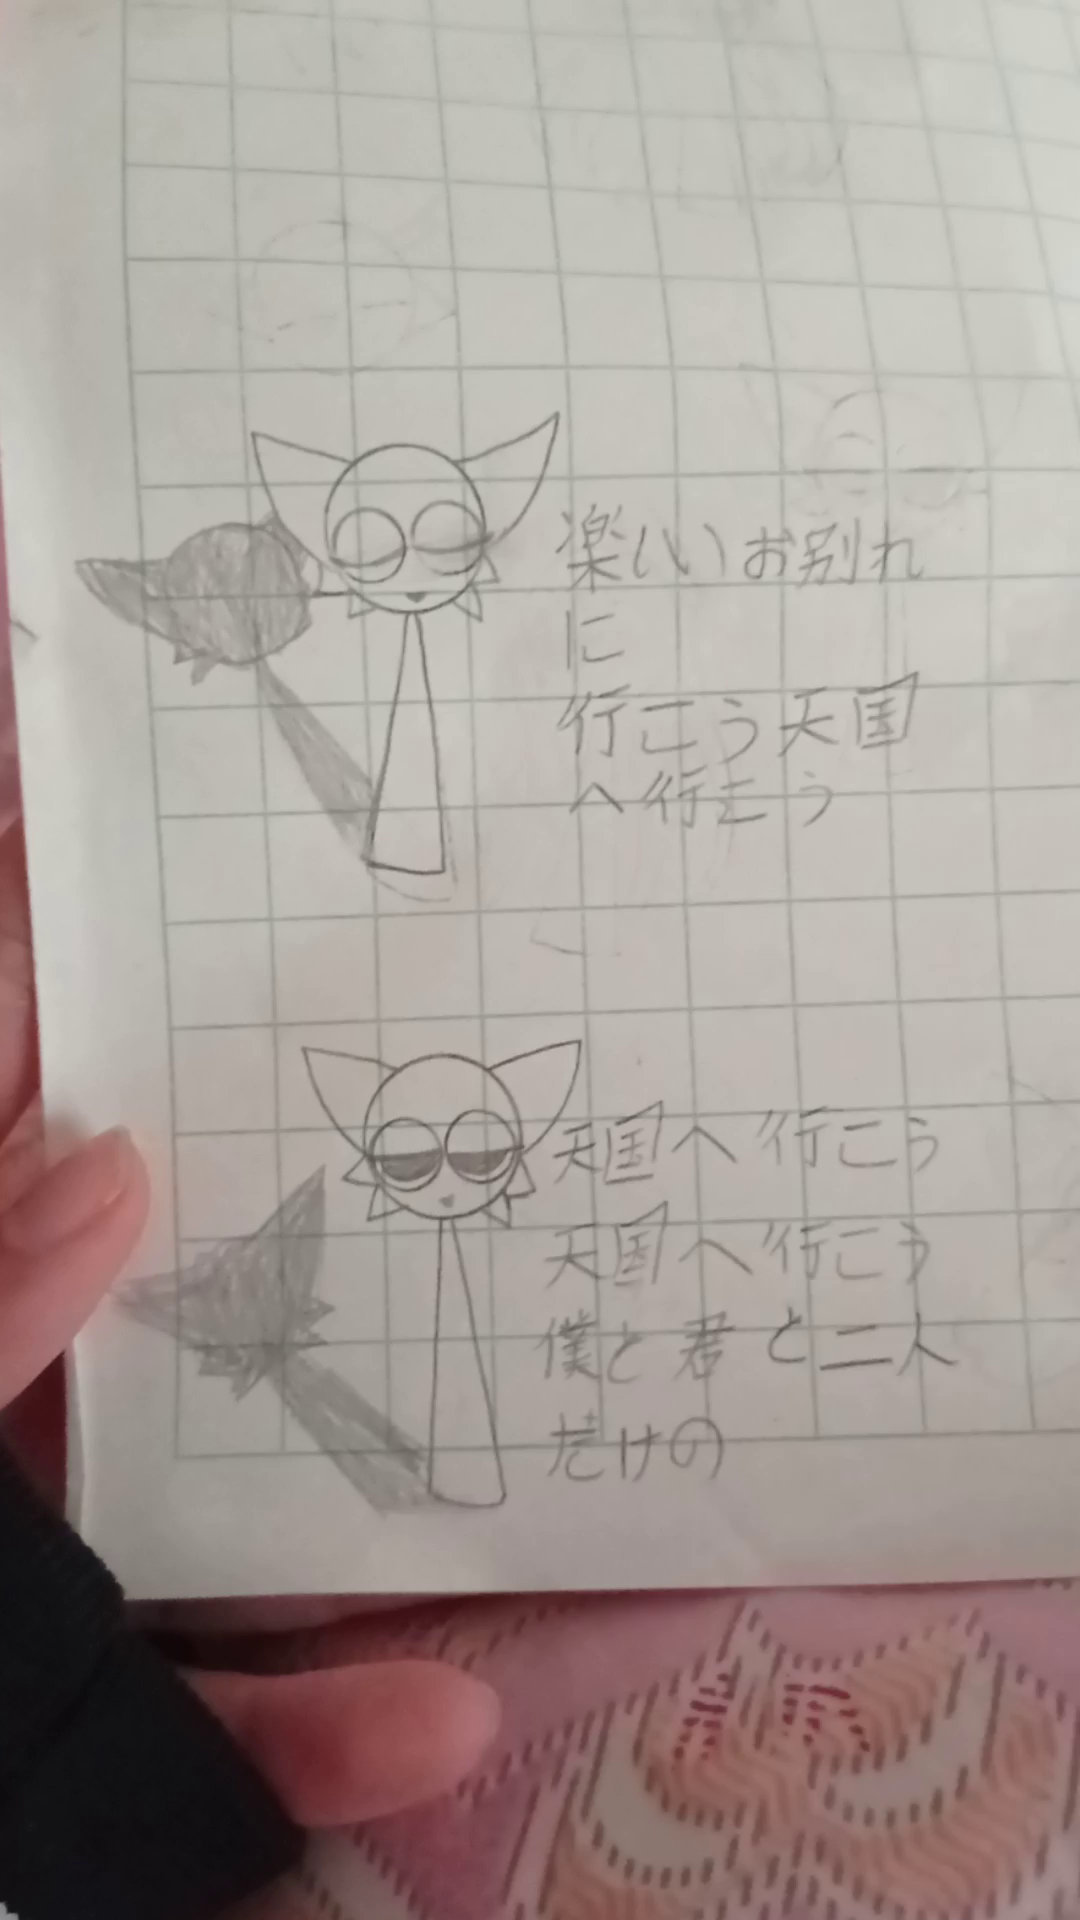 楽しいお別れ
に
行こう天国
へ行こう
天国へ行こう
天国へ行こう
僕と君と二人
だけの